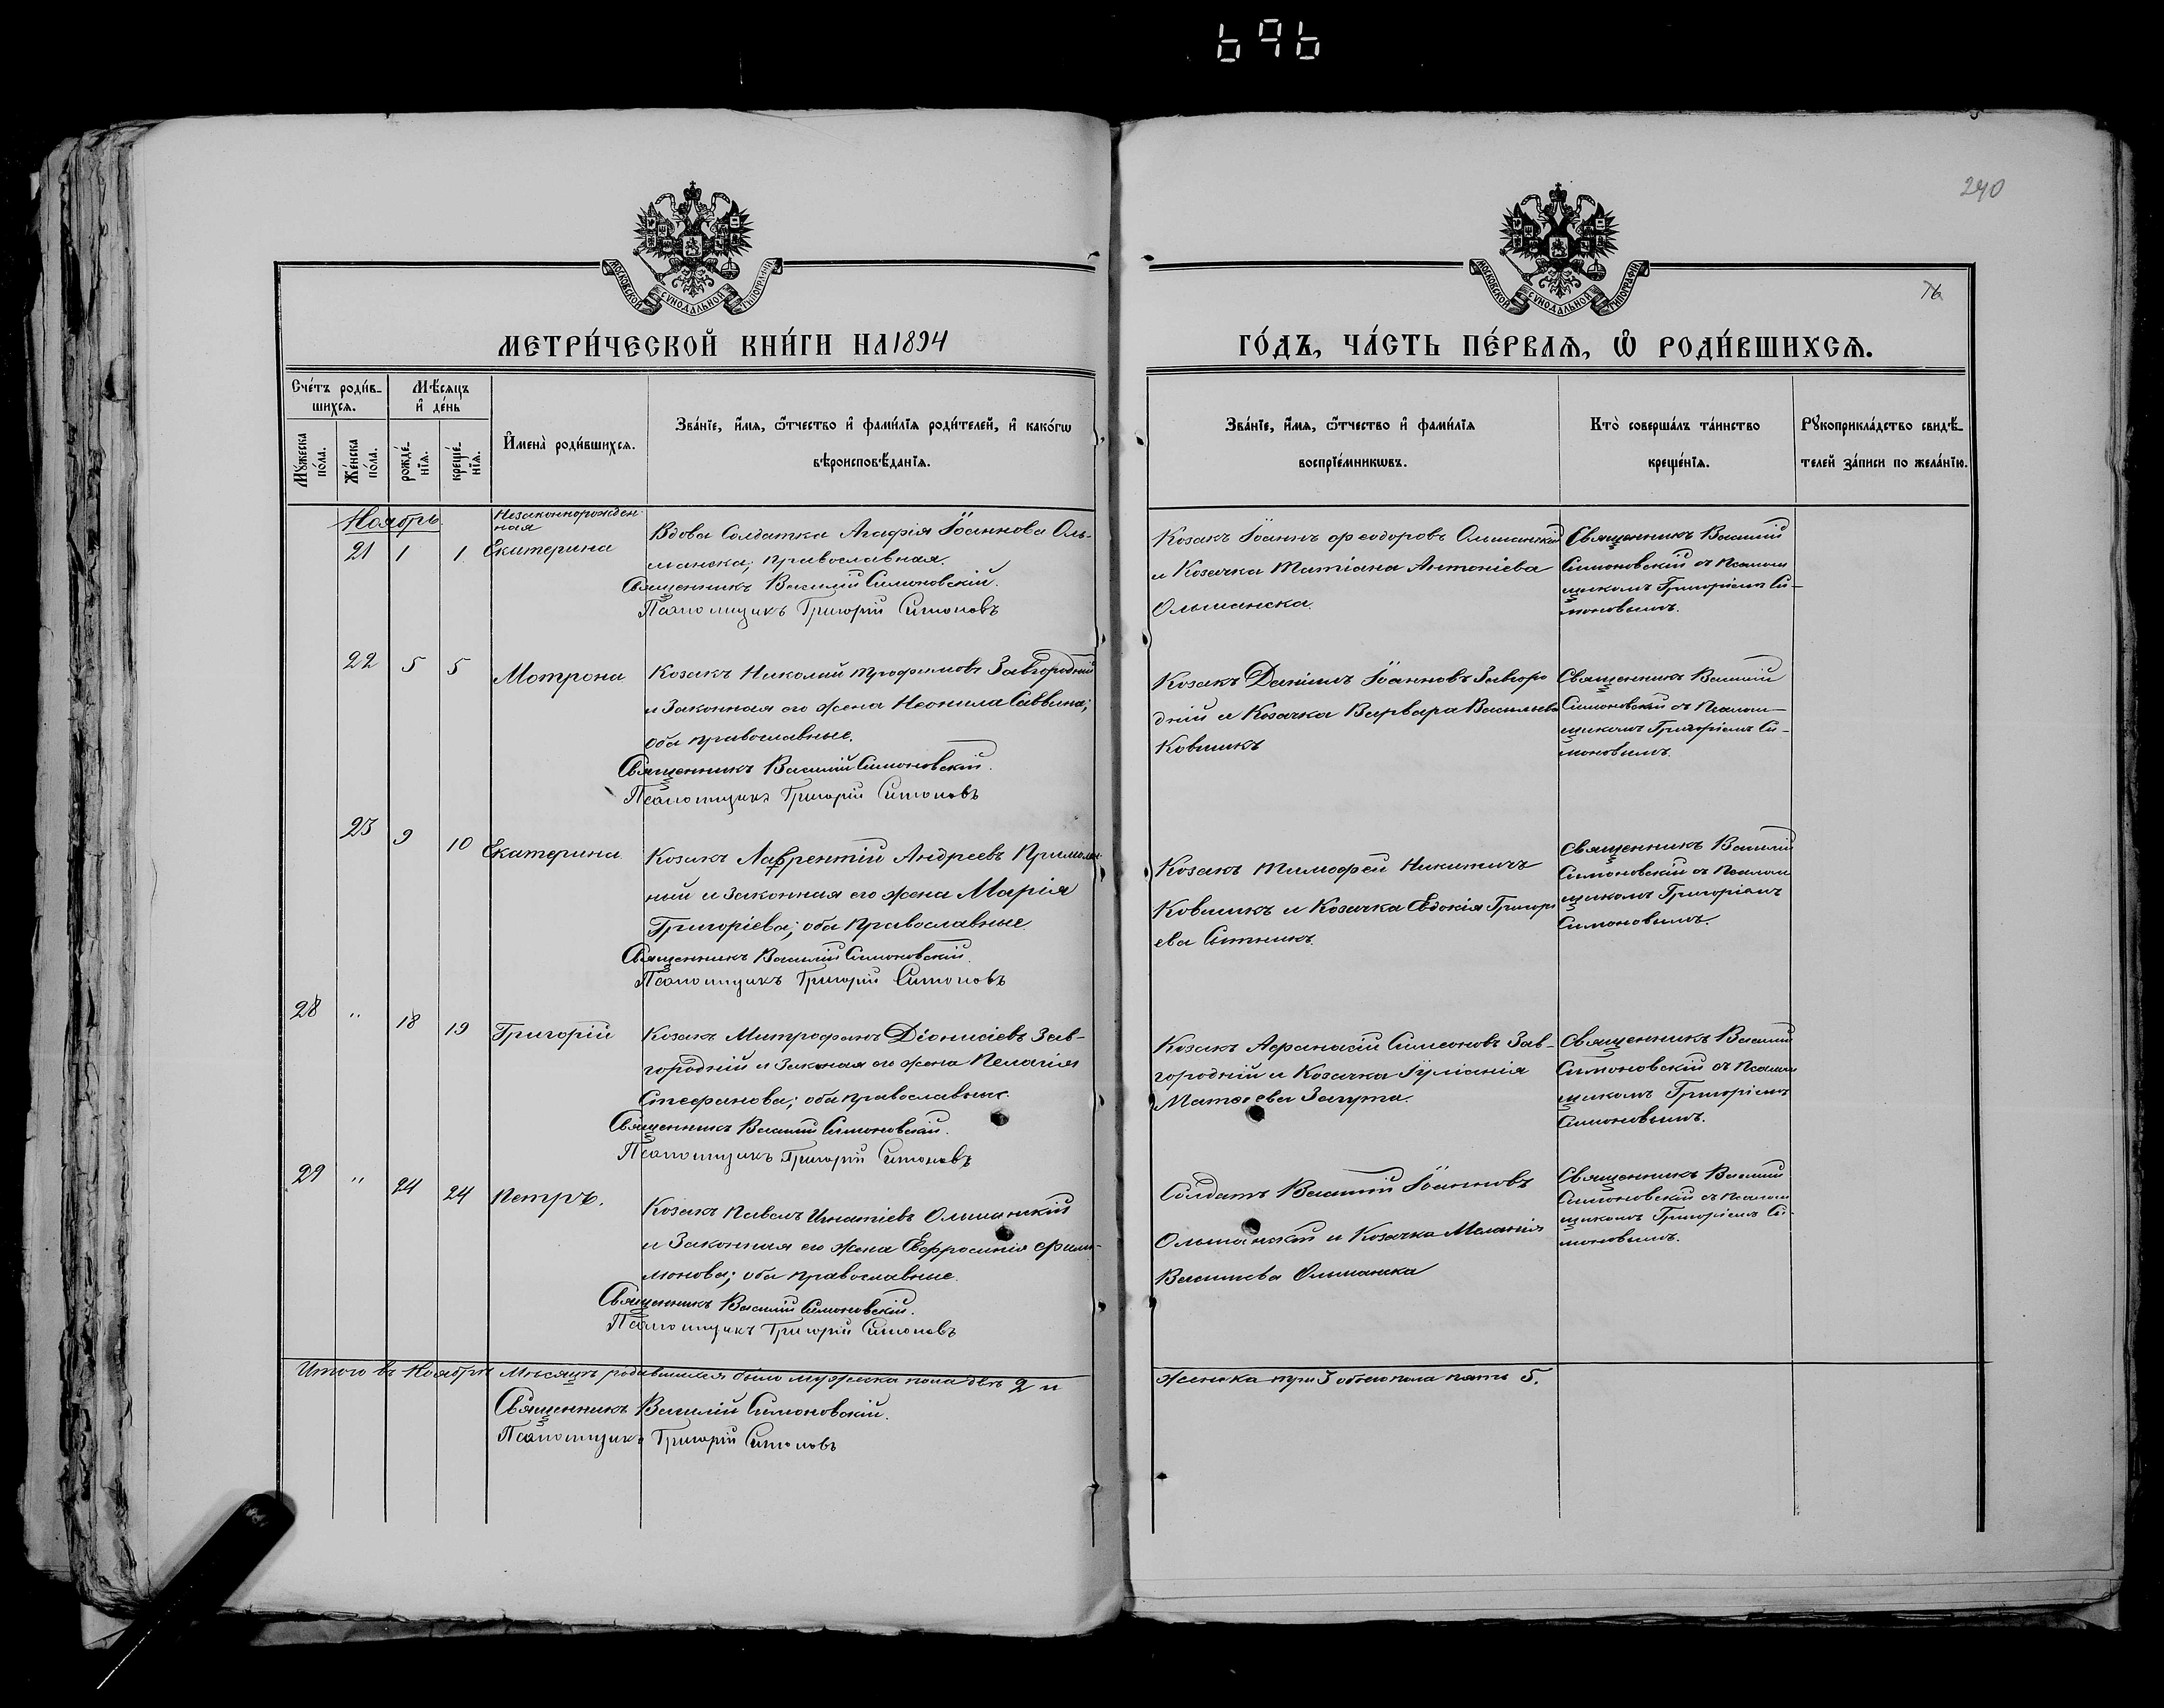 696
240
76
МОСКОВСКОЙ СѴНОДАЛЬНОЙ ТИПОГРАФІИ
МОСКОВСКОЙ СѴНОДАЛЬНОЙ ТИПОГРАФІИ
МЕТРИ́ЧЕСКОЙ КНИ́ГИ НА 1894
ГО́ДЪ, ЧА́СТЬ ПЕ́РВАЯ, Ѡ РОДИ́ВШИХСЯ.
Сче́тъ роди́в-
шихся.
Мѣ́сяцъ
и де́нь
Му́жеска
по́ла.
Же́нска
по́ла.
рожде́-
нїя.
креще́-
нїя.
Имена̀ роди́вшихся.
Зва́нїе, и́мя, ѻ́тчество и фами́лїя роди́телей, и како́гѡ
вѣроисповѣ́данїя.
Зва́нїе, и́мя, ѻ́тчество и фами́лїя
воспрїе́мникѡвъ.
Кто̀ соверша́лъ та́инство
креще́нїя.
Рукоприкла́дство свидѣ́-
телей за́писи по жела́нїю.
Ноябрь
Незаконнорожден-
ная
21 1 1 Екатерина
Вдова Солдатка Агафія Іоаннова Оль-
шанска; православная.
Священникъ Василій Симоновскій.
Псаломщикъ Григорій Симоновъ
Козакъ Іоаннъ Феодоровъ Ольшанскій
и Козачка Татіана Антоніева
Ольшанска.
Священникъ Василій
Симоновскій съ Псалом
щикомъ Григоріемъ Си-
моновымъ.
22 5 5 Мотрона
Козакъ Николай Трофимовъ Завгородній
и Законная его жена Неонила Саввина;
оба православные.
Священникъ Василій Симоновскій.
Псаломщикъ Григорій Симоновъ
Козакъ Даніилъ Іоанновъ Завгоро
дній и Козачка Варвара Васильева
Ковшикъ
Священникъ Василій
Симоновскій съ Псалом-
щикомъ Григоріемъ Си-
моновымъ.
23 9 10 Екатерина
Козакъ Лаврентій Андреевъ
ный и Законная его жена Марія
Григоріева; оба Православные
Священникъ Василій Симоновскій.
Псаломщикъ Григорій Симоновъ
Козакъ Тимофей Никитичъ
Ковшикъ и Козачка Евдокія Григорі
ева Ситникъ.
Священникъ Василій
Симоновскій съ Псалом
щикомъ Григоріемъ
Симоновымъ.
28 " 18 19 Григорій
Козакъ Митрофанъ Діонисіевъ Зав-
городній и Законая его жена Пелагія
Стефанова; оба православные.
Священникъ Василій Симоновскій.
Псаломщикъ Григорій Симоновъ
Козакъ Афанасій Симеоновъ Зав-
городній и Козачка Іуліанія
Матѳеева
Священникъ Василій
Симоновскій съ Псалом
щикомъ Григоріемъ
Симоновымъ.
29 " 24 24 Петръ.
Козакъ Павелъ Игнатіевъ Ольшанскій
и Законная его жена Евфросинія Фили-
монова; оба православные.
Священникъ Василій Симоновскій.
Псаломщикъ Григорій Симоновъ
Солдатъ Василій Іоанновъ
Ольшанскій и Козачка Меланія
Васильева Ольшанска
Священникъ Василій
Симоновскій съ Псалом
щикомъ Григоріемъ Си-
моновымъ.
Итого въ Ноябрѣ Мѣсяцѣ родившихся было мужеска пола два 2 и
женска три 3 обоего пола пять 5.
Священникъ Василій Симоновскій.
Псаломщикъ Григорій Симоновъ